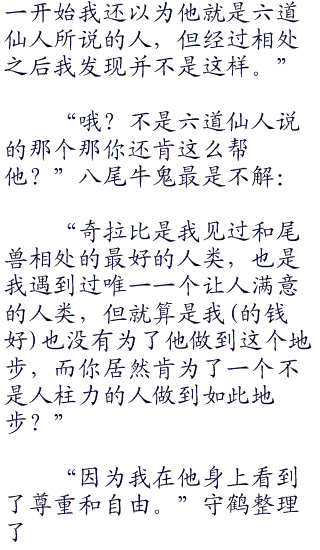 一开始我还以为他就是六道
仙人所说的人，但经过相处
之后我发现并不是这样。”
“哦？不是六道仙人说
的那个那你还肯这么帮
他？”八尾牛鬼最是不解：
“奇拉比是我见过和尾
兽相处的最好的人类，也是
我遇到过唯一一个让人满意
的人类，但就算是我(的钱
好)也没有为了他做到这个地
步，而你居然肯为了一个不
是人柱力的人做到如此地
步？”
“因为我在他身上看到
了尊重和自由。”守鹤整理
了